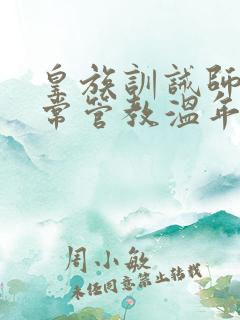 皇族訓誡師
常管教溫年
周小敏
未经同意禁止转载